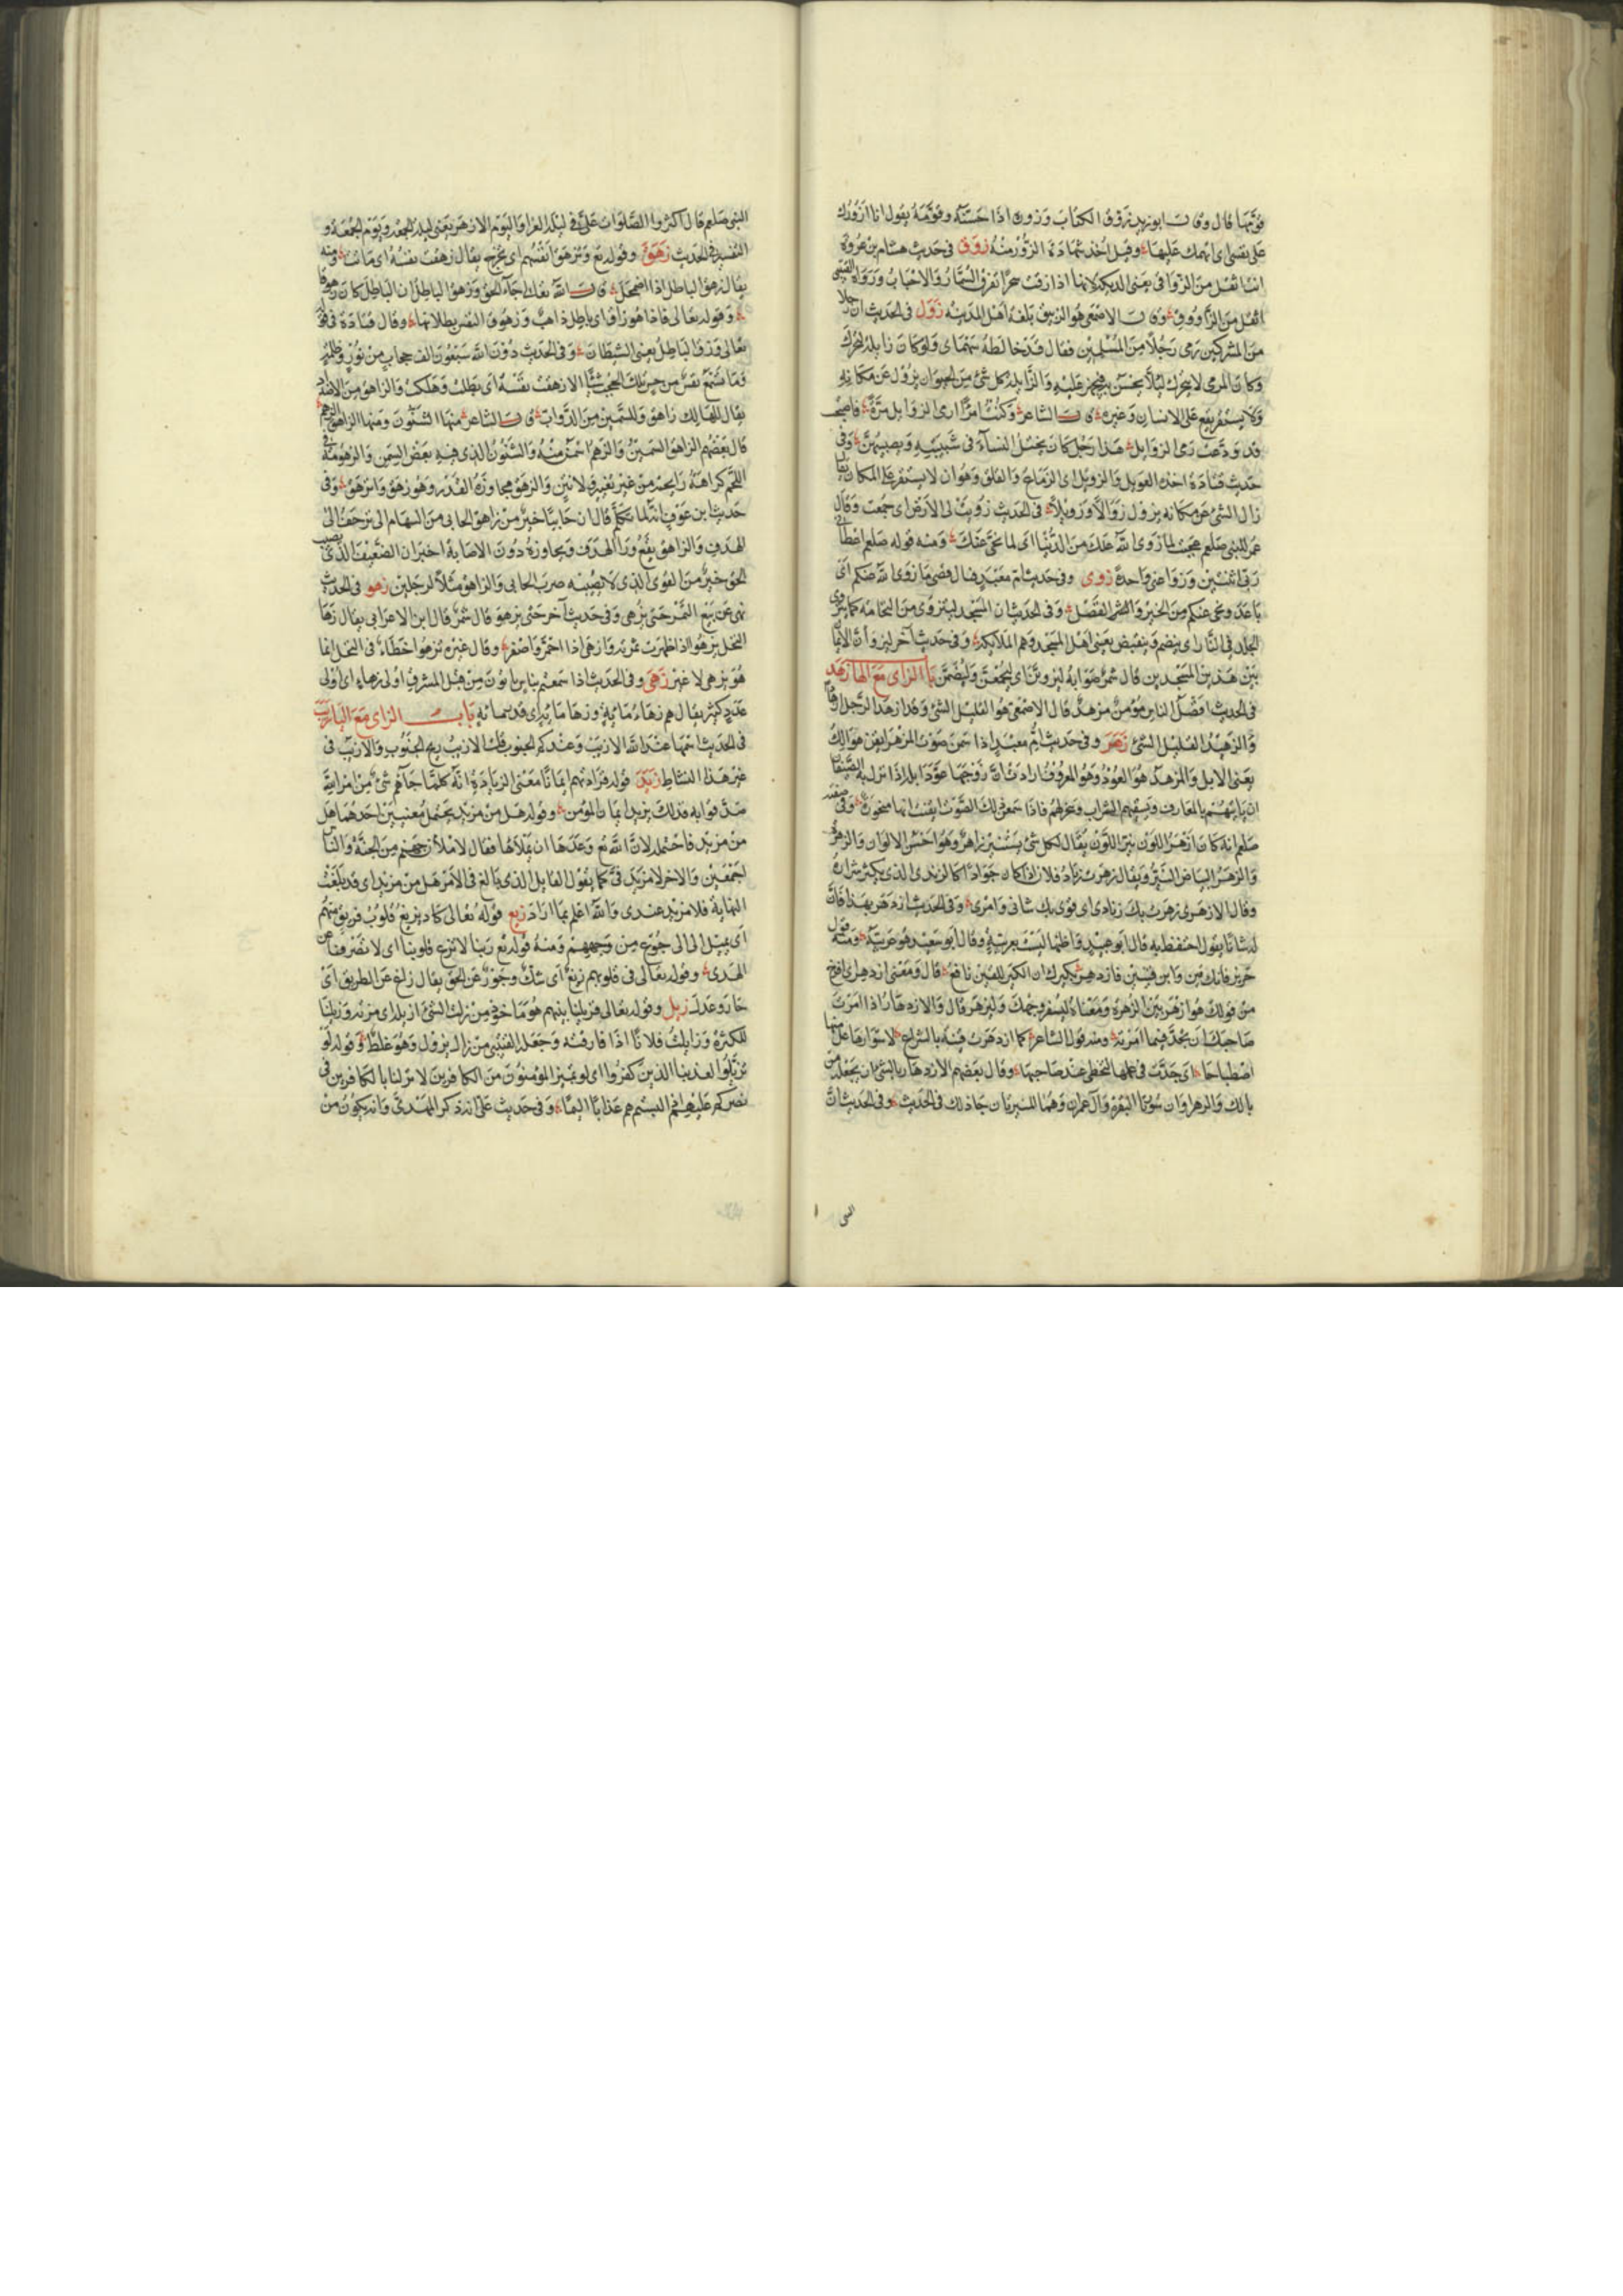 قومتها قال وقال ابو زيد زوق الكتاب وزوره اذا حسنه وقومه يقول انا ازورك
على نفسى اى اتهمك عليها وقيل زوق فى حديث هشام بن عروة
انت اثقل من الزواقى يعنى الديكة لانها اذا زقت سحرا تفرق السمار والاحباب ورواه القتيبى
اثقل من الزاووق وقال الاصمعى هو الزيبق بلغة اهل المدينة زول فى الحديث ان رجلا
من المشركين رمى رجلا من المسلمين فقال قد خالطه سهماى ولو كان زايلة لتحرك
وكان المرمى لا يتحرك ليلا يحس به فيجهز عليه والزايلة كل شئ من الحيوان يزول عن مكانه
ولا يستقر يقع على الانسان وغيره قال الشاعر وكنت امرأ ارمى الزوايل مرة فاصبحت
قد ودعت رمى الزوايل هذا رجل كان يختل النساء فى شبيبته ويصيبهن وفى
حديث قتادة اخذه العويل والزويل اى الزماع والقلق وهو ان لا يستقر على المكان يقال
زال الشئ عن مكانه يزول زوالا وزويلا فى الحديث زويت لى الارض اى جمعت وقال
عمر للنبى صلعم عجبت لما زوى الله عنك من الدنيا اى لما نحى عنك ومنه قوله صلعم اعطانى
ربى اثنتين وزوا عنى واحدة زوى وفى حديث ام معبد فيال قصى ما زوى الله عنكم اى
باعد ونحى عنكم من الخير والفضل وفى الحديث ان المسجد لينزوى من النخامة كما ينزوى
الجلد فى النار اى ينضم وينقبض يعنى اهل المسجد وهم الملائكة وفى حديث آخر ليزوأن الايمان
بين هذين المسجدين قال شمر صوابه ليزوين اى ليجمعن وليضمن باب الزاى مع الها زهد
فى الحديث افضل الناس مؤمن مزهد قال الاصمعى هو القليل الشئ وقد ازهد الرجل اذا قل
والزهيد القليل الشئ زهر وفى حديث ام معبد اذا سمعن صوت المزهر ايقن هوالك
يعنى الابل والمزهر هو العود وهو المعروف ارادت ان زوجها عود ابله اذا نزل به الضيفان
ان ياتيهم بالمعازف ويسقيهم الشراب وينحر لهم فاذا سمعن ذلك الصوت ايقنت انها منحورة وفى صفته
صلعم انه كان ازهر اللون نير اللون يقال لكل شئ مستنير زاهر وهو احسن الالوان والزهر
والزهر البياض النير ويقال زهرت زناد فلان اذا كان جوادا كالزند الذى يكثر شراره
وقال الازهرى زهرت بك زنادى اى قوى بك شانى وامرى وفى الحديث ازدهر بهذا فان
له شانا يقول احتفظ به قال ابو عبيد واظنها ليست بعربية وقال ابو سعيد هو عربية ومنه قول
جرير فانك قين وابن قينين فازدهر بكيرك ان الكير للقين نافع قال ومعنى ازدهر اى افرح
من قولك هو ازهر بين الزهرة ومعناه ليسفر وجهك وليزهر قال والازدهار اذا امرت
صاحبك ان يجد فيما امرته ومنه قول الشاعر كما ازدهرت قينة بالشراع لاسوارها عل منها
اصطباحا اى جدت فى عملها لتحظى عند صاحبها وقال بعضهم الازدهار بالشئ ان يجعله من
بالك والزهراوان سورتا البقرة وآل عمران وهما المنيرتان جا ذلك فى الحديث وفى الحديث ان
النبى
النبى صلعم قال اكثروا الصلوات على فى ليلة الغرا واليوم الازهر يعنى ليلة الجمعة ويوم الجمعة و
التفسير فى الحديث زهق وقوله تع وتزهق انفسهم اى تخرج يقال زهقت نفسه اى ماتت ومنه
يقال زهق الباطل اذا اضمحل قال الله تعالى جاء الحق وزهق الباطل ان الباطل كان زهوقا
وقوله تعالى فاذا هو زاهق اى باطل ذاهب وزهوق النفس بطلانها وقال قتادة فى قوله
تعالى وزهق الباطل يعنى الشيطان وفى الحديث دون الله سبعون الف حجاب من نور وظلمة
وما تسمع نفس من حس تلك الحجب شيا الا زهقت نفسه اى بطلت وهلكت والزاهق من الاضداد
يقال للهالك زاهق وللسمين من الدواب قال الشاعر منها الشنون ومنها الزاهق الزهم
قال بعضهم الزاهق السمين والزهم اسمن منه والشنون الذى فيه بعض السمن والزهومة فى
اللحم كراهة رايحة من غير تغير ولا نتن والزهق مجاوزة القدر وهو زهق وانزهق وفى
حديث ابن عوف انه لما تكلم قال ان حابيا خير من زاهق الحابى من السهام الى يزحف الى
الهدف والزاهق يقع ورا الهدف ويجاوزه دون الاصابة اخبر ان الضعيف الذى يصيب
الحق خير من القوى الذى لا يصيبه ضرب الحابى والزاهق مثلا لرجلين زهو فى الحديث
نهى عن بيع الثمر حتى يزهى وفى حديث آخر حتى يزهو قال شمر قال ابن الاعرابى يقال زها
النخل يزهو اذا ظهرت ثمرته وازهى اذا احمر واصفر وقال غيره يزهو خطاء فى النخل انما
هو يزهى لا غير زهى وفى الحديث اذا سمعتم بناس ياتون من قبل المشرق اولى زهاء اى اولى
عدد كثير يقال هم زهاء مائة وزها مائة اى قدر مائة باب الزاى مع اليا زيب
فى الحديث اسمها عند الله الازيب وعندكم الجنوب قلت الازيب ريح الجنوب والازيب فى
غير هذا النشاط زيد قوله فزادتهم ايمانا معنى الزيادة انه كلما جاءهم شئ من امر الله
صدقوا به فذلك يزيد ايمان المؤمن وقوله هل من مزيد يحتمل معنيين احدهما هل
من مزيد فاحتمله لان الله تع وعدها ان يملأها فقال لاملأن جهنم من الجنة والناس
اجمعين والاخر لا مزيد فى كما يقول القايل الذى بالغ فى الامر هل من مزيد اى قد بلغت
النهاية فلا مزيد عندى والله اعلم بما اراد زيغ قوله تعالى كاد يزيغ قلوب فريق منهم
اى يميل الى الرجوع من وجههم ومنه قوله تع ربنا لا تزغ قلوبنا اى لا تصرفنا عن
الهدى وقوله تعالى فى قلوبهم زيغ اى شك وجور عن الحق يقال زاغ عن الطريق اى
حار وعدل زيل وقوله تعالى فزيلنا بينهم هو ماخوذ من زلت الشئ ازيله اى مزته وزيلنا
للكثرة وزايلت فلانا اذا فارقته وجعله القتيبى من زال يزول وهو غلط وقوله لو
تزيلوا لعذبنا الذين كفروا اى لو تميز المؤمنون من الكافرين لانزلنا بالكافرين فى
نصركم عليهم عذابا اليما وفى حديث على انه ذكر المهدى وانه يكون من